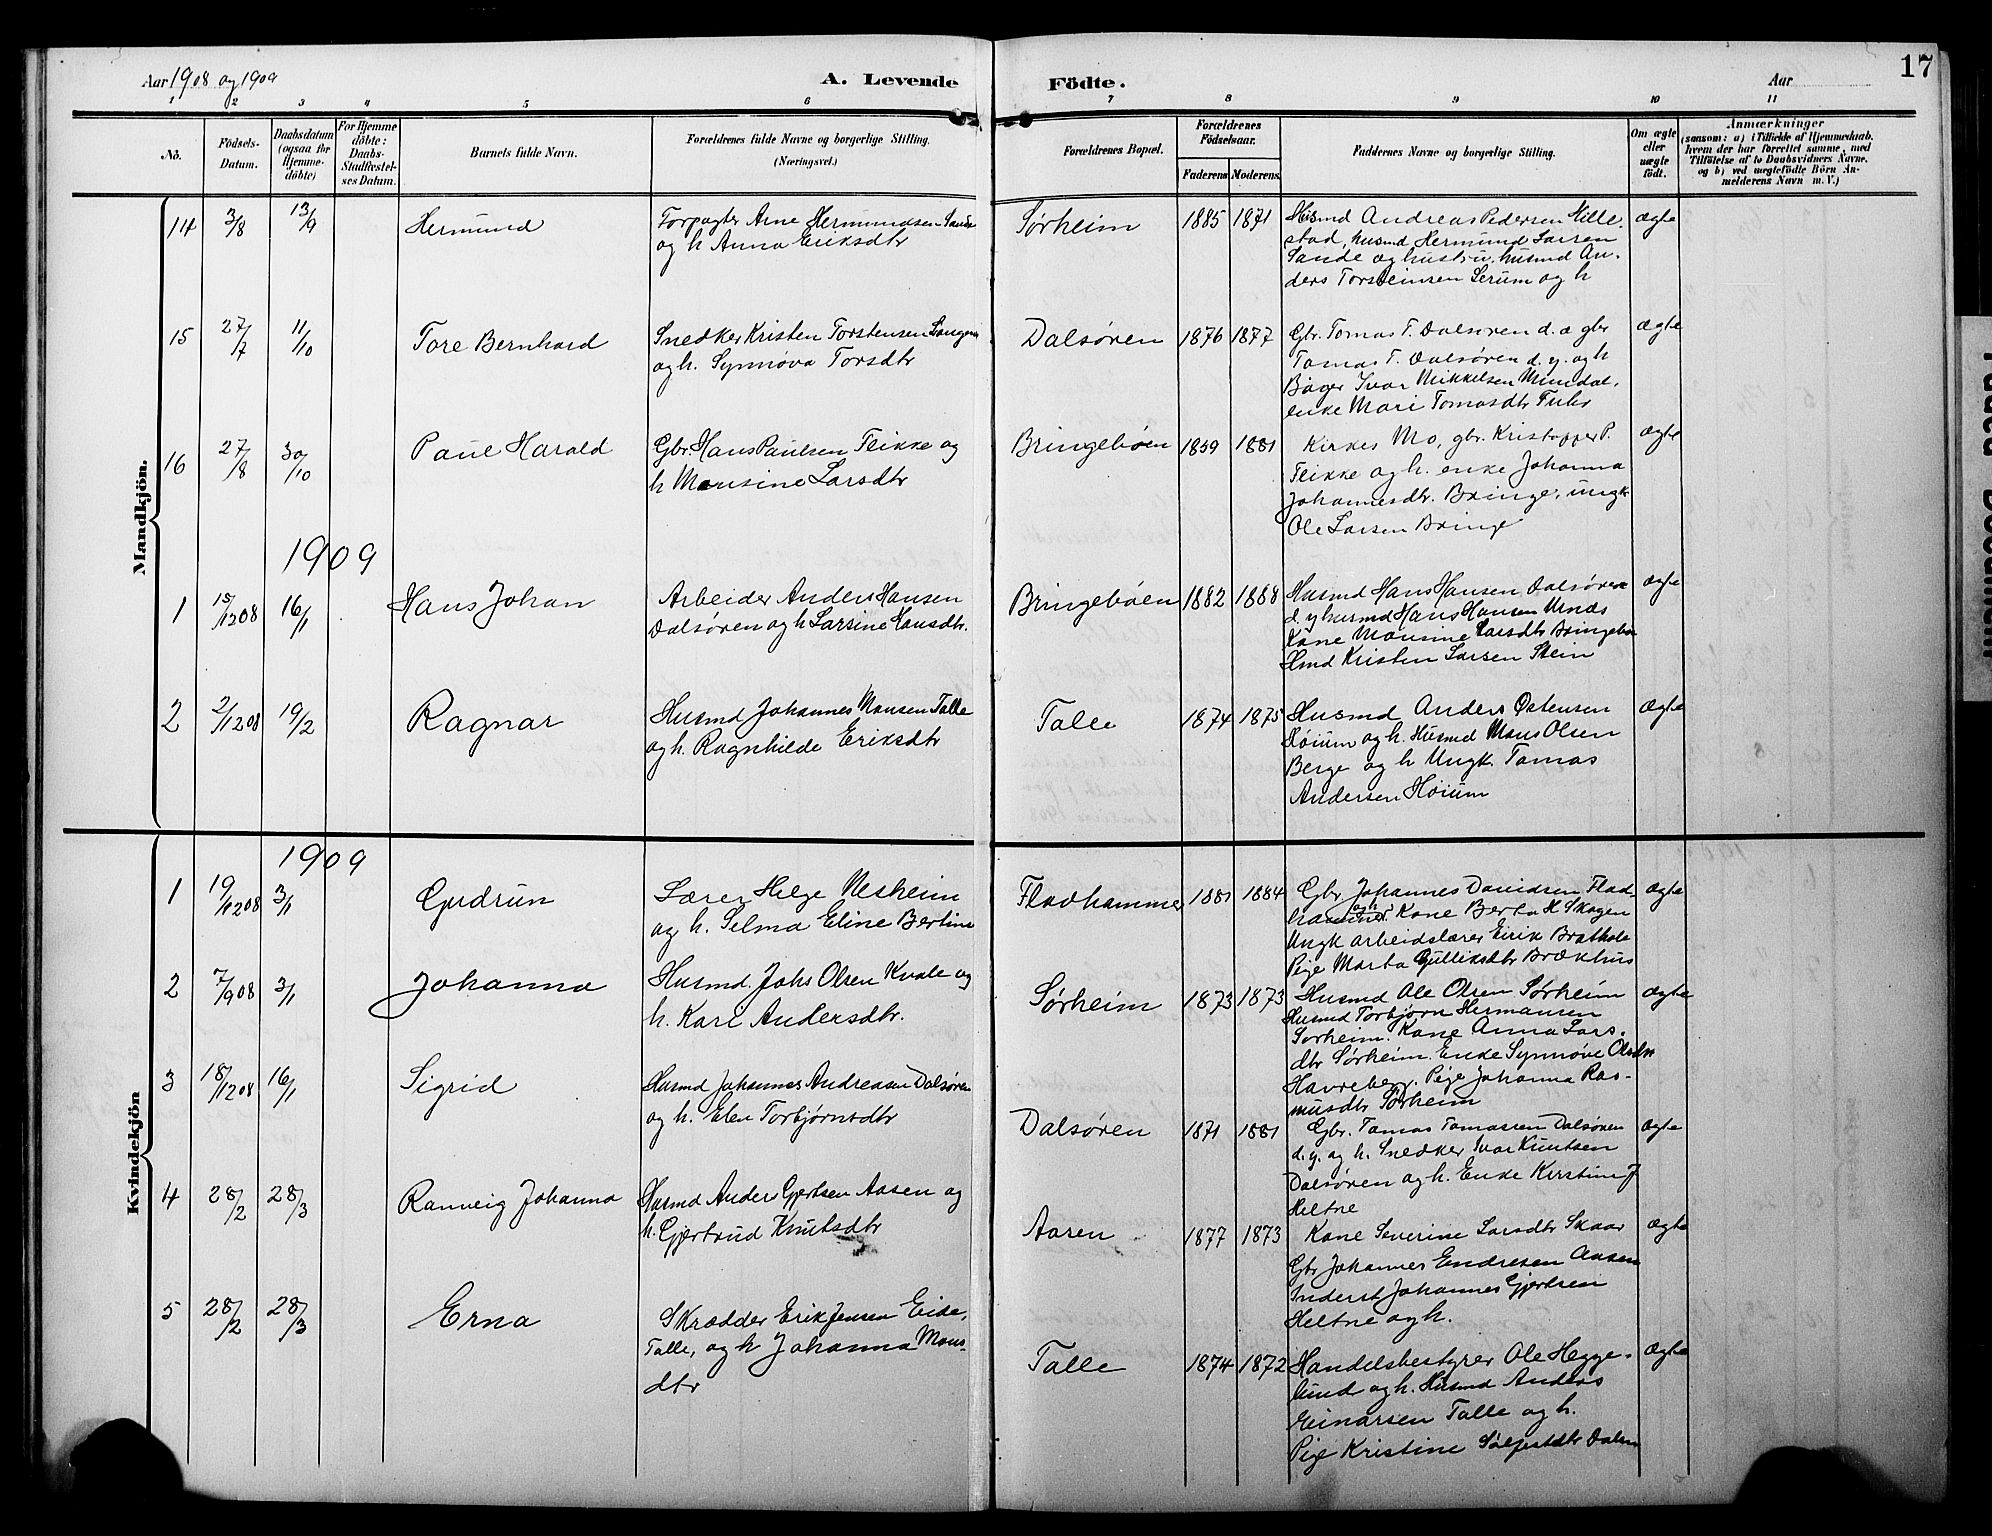 Aar 1908 og 1909
A. Levende
Födte.
Aar
17
1 2 3 4 5 6 7 8 9 10 11
No.
Födsels-Datum.
Daabsdatum (ogsaa for Hjemme-döbte)
For Hjemme döbte: Daabs-Stadfæstel-ses Datum.
Barnets fulde Navn.
Forældrenes fulde Navne og borgerlige Stilling.
(Næringsvei.)
Forældrenes Bopæl.
Forældrenes Födselsaar.
Faderens Moderens.
Faddernes Navne og borgerlige Stilling.
Om ægte eller uægte födt.
Anmærkninger
(saasom: a) i Tilfælde af Hjemmedaab.
hvem der har forrettet samme, med
Tilföielse af to Daabsvidners Navne.
og b) ved uægtefödte Börn An-
melderens Navn m. V.)
Mandkjön.
14 3/8 13/9 Hermund
Forpagter Arne Hermundsen Sande
og h Anna Eriksdtr
Sørheim 1885 1871
Husmd Andreas Pedersen Hille-
stad, husmd Hermund Larsen
Sande og hustru, husmd An-
ders Torsteinsen Lerum og h
ægte
15 27/7 11/10 Tore Bernhard
Snedker Kristen Torstensen
og h. Synnøva Torsdtr
Dalsøren 1876 1877
Gbr. Tomas T. Dalsøren d. æ gbr
Tomas T. Dalsøren d. y. og h
Bager Ivar Mikkelsen Mundal,
enke Mari Tomasdtr Fuhr
ægte
16 27/8 30/10 Paul Harald
Gbr. Hans Paulsen Teikke og
h Monsine Larsdtr
Bringebøen 1859 1881
Kirkes. Mo, gbr. Kristoffer P.
Teikke og h. enke Johanna
Johannesdtr. Bringe, ungk
Ole Larsen Bringe
ægte
1909
1 15/12 08 16/1 Hans Johan
Arbeider Anders Hansen
Dalsøren og h Larsine Hansdtr.
Bringebøen 1882 1888
Husmd Hans Hansen Dalsøren
d. y husmd Hans Hansen Urnæs
Kone Monsine Larsdtr Bringebøn
Hmd Kristen Larsen Stein
Ægte
2 2/12 08 19/2 Ragnar
Husmd Johannes Monsen Talle
og h. Ragnhilde Eriksdtr
Talle 1874 1875
Husmd Anders Østensen
Høium og h. Husmd Mons Olsen
Berge og h Ungk. Tomas
Andersen Høium
Ægte
Kvindekjön
1909
1 19/12 08 3/1 Gudrun
Lærer Helge Nesheim
og h. Selma Eline Bertine
Fladhammer 1881 1884
Gbr Johannes Davidsen Flad-
hammer og h. Kone Berta H Skagen
Ungk arbeidslærer Eirik Brathole
Pige Marta Gulliksdtr Brækhus
Ægte
2 7/9 08 3/1 Johanna
Husmd. Johs Olsen Kvale og
h. Kari Andersdtr.
Sørheim 1873 1873
Husmd Ole Olsen Sørheim
Husmd Torbjørn Hermansen
Sørheim. Kone Anna Lars-
dtr Sørheim. Enke Synnøve Olsdtr
Havreberg. Pige Johanna Ras-
musdtr Sørheim
Ægte
3 18/12 08 16/1 Sigrid
Husmd Johannes Andreasen Dalsøren
og h. Elen Torbjørnsdtr
Dalsøren 1871 1881
Gbr. Tomas Tomassen Dalsøren
d. y. og h. Snedker Ivar Knutsen
Dalsøren og h. Enke Kirstine J
Heltne
Ægte
4 28/2 28/3 Ranveig Johanna
Husmd Anders Gjertsen Aasen og
h. Gjertrud Knutsdtr
Aasen 1877 1873
Kone Severine Larsdtr Skaar
Gbr Johannes Endresen Aasen
Inderst Johannes Gjertsen
Heltne og h.
Ægte
5 28/2 28/3 Erna
Skrædder Erik Jensen Eide,
Talle, og h Johanna Mons-
dtr
Talle 1874 1872
Handelsbestyrer Ole Hegge-
lund og h. Husmd Anders
Einarsen Talle og h.
Pige Kristine Sølfestdtr Dalen
Ægte